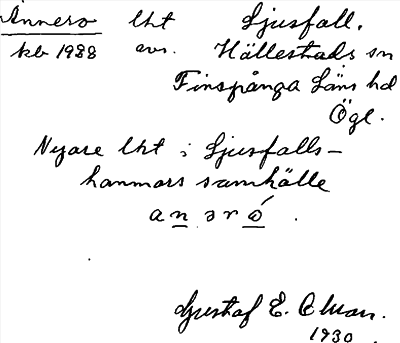 Annero lht Ljusfall.
kb 1988 avs. Hällestads sn
Finspånga Läns hd
Ögl.
Nyare lht i Ljusfalls-
hammars samhälle
a n ə r ó .
Gustaf E. Olman.
1930.